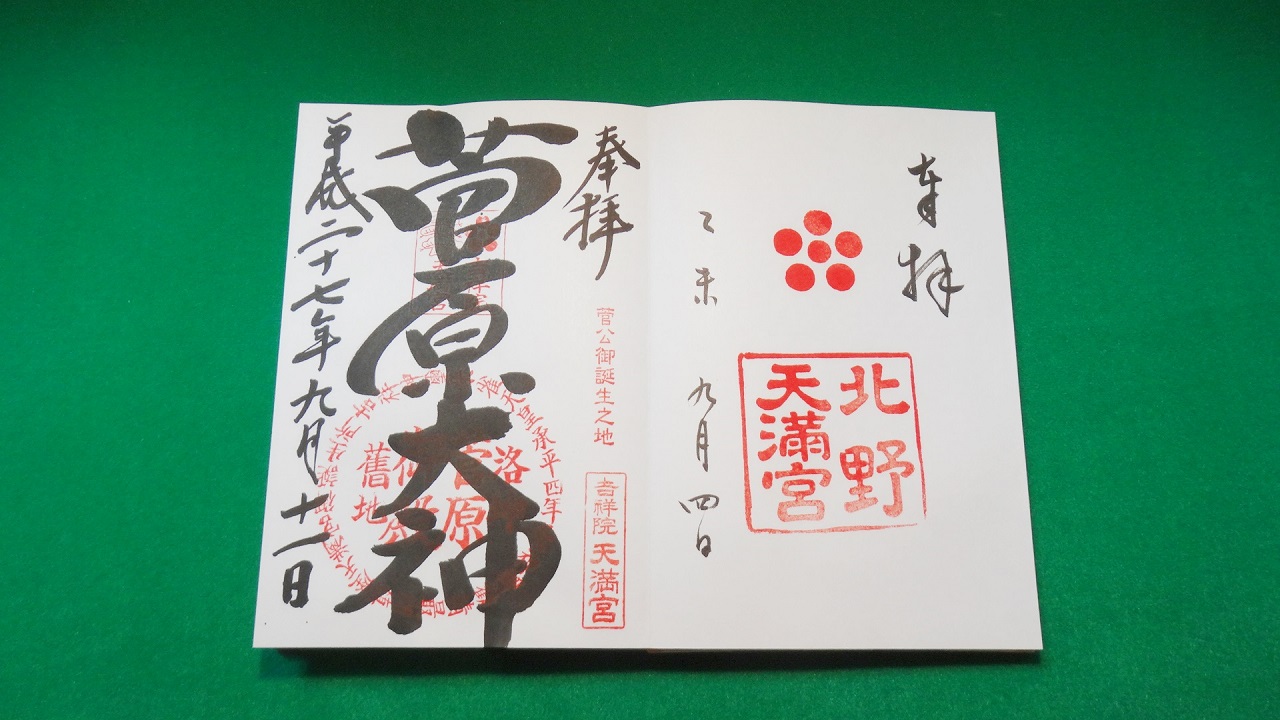 奉拝
北野
天満宮
乙未 九月四日
奉拝
菅公御誕生之地
吉祥院天満宮
菅原大神
平成二十七年九月十一日